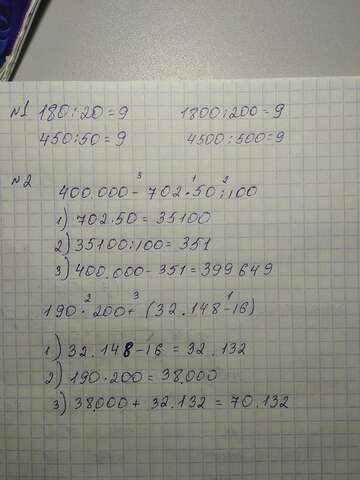 №1 180:20=9 1800:200=9
450:50=9 4500:500=9
№2
3 1 2
400.000-702·50:100
1) 702·50=35100
2) 35100:100=351
3) 400.000-351=399649
2 3 1
190·200+(32.148-16)
1) 32.148-16=32.132
2) 190·200=38.000
3) 38.000+32.132=70.132